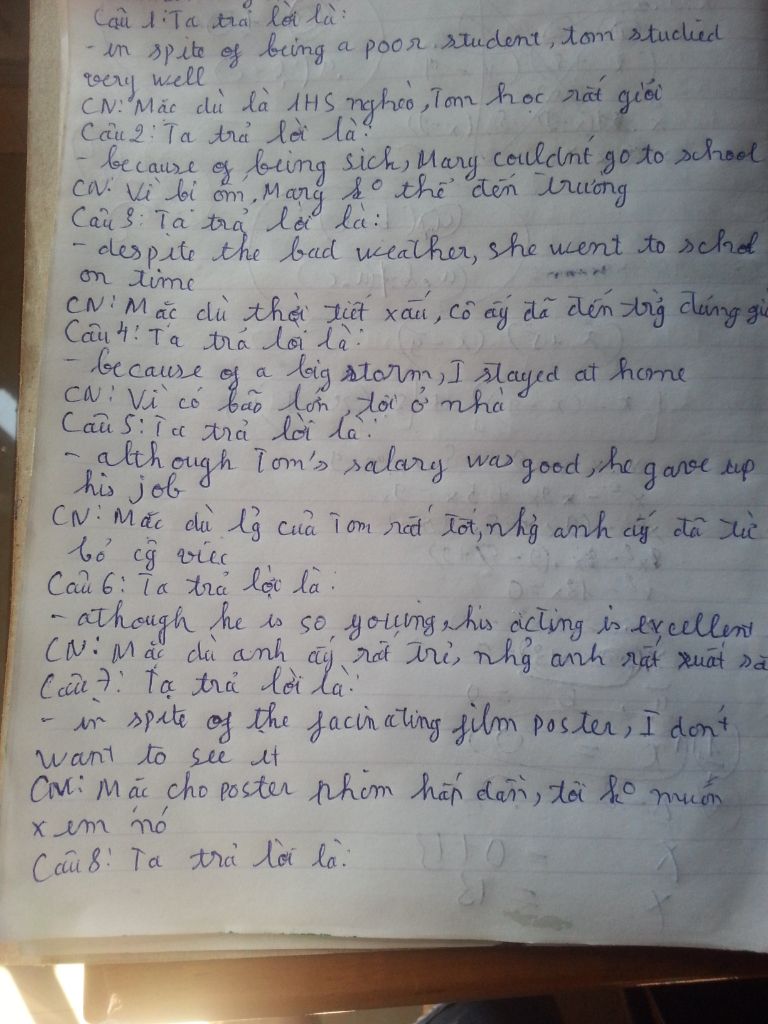 Câu 1: Ta trả lời là:
- in spite of being a poor student, tom studied
very well
CN: Mặc dù là 1HS nghèo, Tom học rất giỏi
Câu 2: Ta trả lời là:
- because of being sick, Mary couldn't go to school
CN: Vì bị ốm, Mary ko thể đến trường
Câu 3: Ta trả lời là:
- despite the bad weather, she went to schol
on time
CN: Mặc dù thời tiết xấu, cô ấy đã đến trg đúng giờ
Câu 4: Ta trả lời là:
- because of a big storm, I stayed at home
CN: Vì có bão lớn, tôi ở nhà
Câu 5: Ta trả lời là:
- although Tom's salary was good, he gave up
his job
CN: Mặc dù lg của Tom rất tốt, nhg anh ấy đã từ
bỏ cg việc
Câu 6: Ta trả lời là:
- athough he is so young, his acting is excellent
CN: Mặc dù anh ấy rất trẻ, nhg anh rất xuất sắ
Câu 7: Ta trả lời là:
- in spite of the facinating film poster, I don't
want to see it
CN: Mặc cho poster phim hấp dẫn, tôi ko muốn
xem nó
Câu 8: Ta trả lời là: